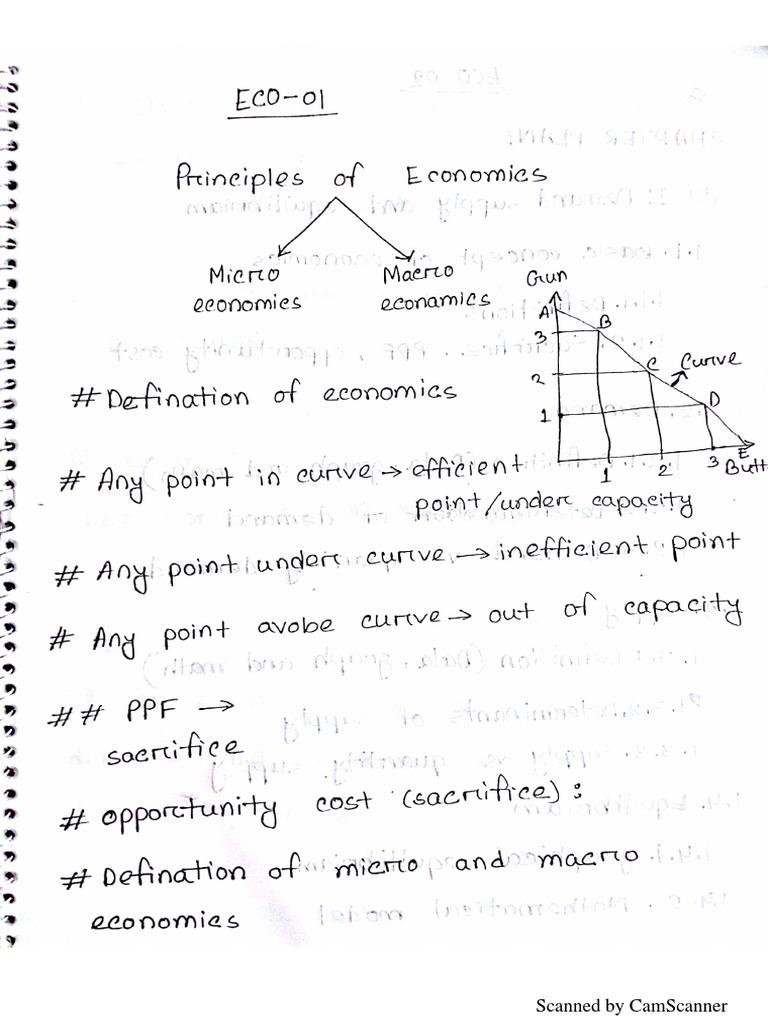 ECO-01
Principles of Economics
Micro economics
Macro econamics
Gun
A
B
3
C
Curve
2
D
1
E
1 2 3 Butt
# Defination of economics
# Any point in curve → efficient
point/under capacity
# Any point under curve → inefficient point
# Any point avobe curve → out of capacity
## PPF →
sacrifice
# opportunity cost (sacrifice) :
# Defination of micro and macro
economics
Scanned by CamScanner